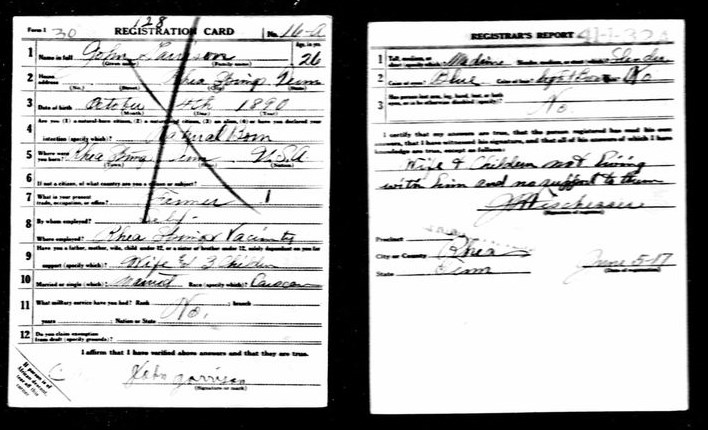 128
Form 1 30 REGISTRATION CARD No. 16-A
1 Name in full John Garrison Age, in yrs. 26
(Given name) (Family name)
2 Home address Rhea Springs Tenn
(No.) (Street) (City) (State)
3 Date of birth October 4th 1890
(Month) (Day) (Year)
4 Are you (1) a natural-born citizen, (2) a naturalized citizen, (3) an alien, (4) or have you declared your
intention (specify which)? Natural Born
5 Where were you born? Rhea Springs Tenn U.S.A
(Town) (State) (Nation)
6 If not a citizen, of what country are you a citizen or subject?
7 What is your present trade, occupation, or office? Farmer 1
8 By whom employed? Self
Where employed? Rhea Springs Vacinity
9 Have you a father, mother, wife, child under 12, or a sister or brother under 12, solely dependent on you for
support (specify which)? Wife & 3 Children
10 Married or single (which)? Married Race (specify which)?
11 What military service have you had? Rank No. ; branch
years ; Nation or State
12 Do you claim exemption from draft (specify grounds)?
I affirm that I have verified above answers and that they are true.
C John Garrison
(Signature or mark)
If person is of African descent, tear off this corner
REGISTRAR'S REPORT 41-1-32 A
1 Tall, medium, or short (specify which)? Medium Slender, medium, or stout (which)? Slender
2 Color of eyes? Blue Color of hair? Light Brown Bald? No
3 Has person lost arm, leg, hand, foot, or both
eyes, or is he otherwise disabled (specify)? No.
I certify that my answers are true, that the person registered has read his own
answers, that I have witnessed his signature, and that all of his answers of which I have
knowledge are true, except as follows:
Wife & Children not living
with him and no support to them
(Signature of registrar)
Precinct
City or County Rhea
State Tenn June 5-17
(Date of registration)